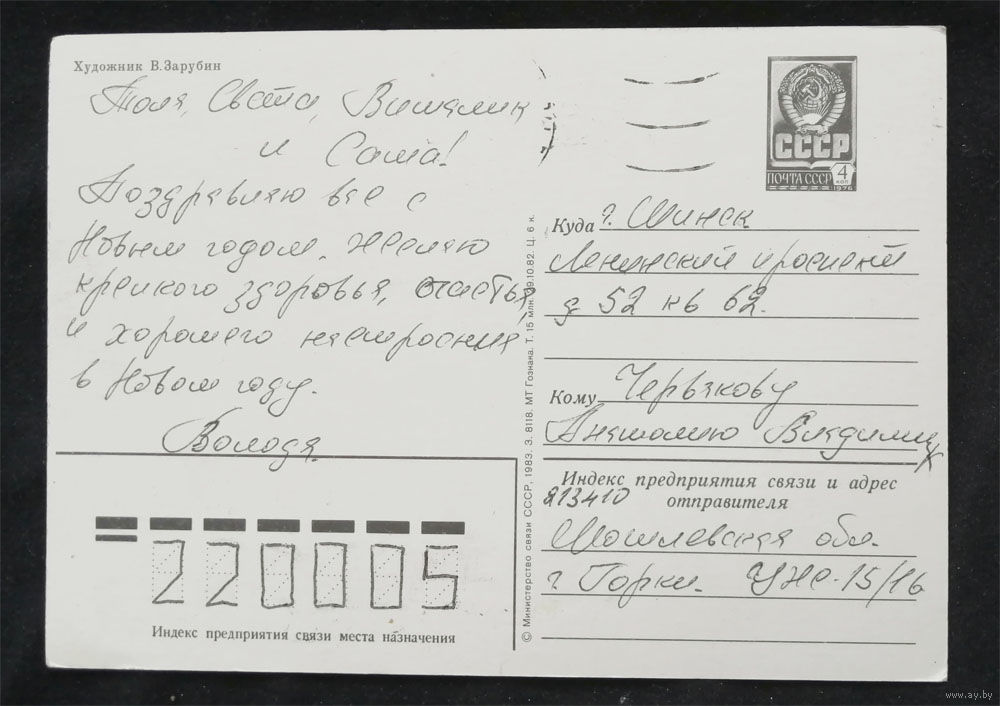 Художник В. Зарубин
Толя, Света, Виталик
и Саша!
Поздравляю вас с
Новым годом. Желаю
крепкого здоровья, счастья,
и хорошего настроения
в Новом году.
Володя.
СССР
ПОЧТА СССР
4
КОП
1976
Куда г. Минск
Ленинский проспект
д 52 кв 62.
Кому Червякову
Анатолию Владимир
Индекс предприятия связи и адрес
отправителя
213410
Могилевская обл.
г Горки. УЖ-15/16
220005
Индекс предприятия связи места назначения
© Министерство связи СССР, 1983. З. 8118. МТ Гознака. Т. 15 млн. 29.10.82. Ц. 6 к.
www.ay.by